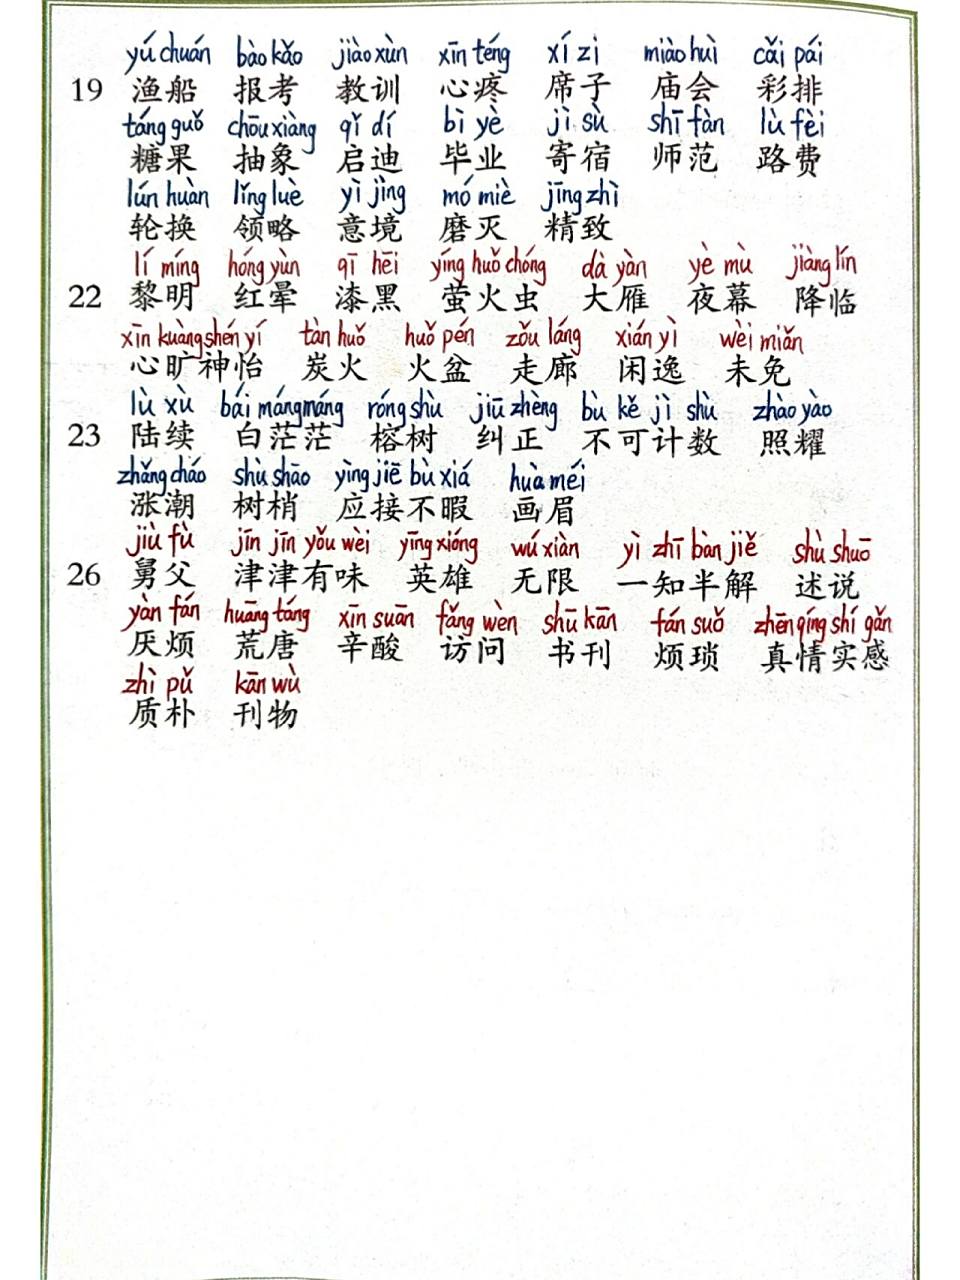 yú chuán bào kǎo jiào xùn xīn téng xí zi miào huì cǎi pái
19 渔船 报考 教训 心疼 席子 庙会 彩排
táng guǒ chōu xiàng qǐ dí bì yè jì sù shī fàn lù fèi
糖果 抽象 启迪 毕业 寄宿 师范 路费
lún huàn lǐng luè yì jìng mó miè jīng zhì
轮换 领略 意境 磨灭 精致
lí míng hóng yùn qī hēi yíng huǒ chóng dà yàn yè mù jiàng lín
22 黎明 红晕 漆黑 萤火虫 大雁 夜幕 降临
xīn kuàng shén yí tàn huǒ huǒ pén zǒu láng xián yì wèi miǎn
心旷神怡 炭火 火盆 走廊 闲逸 未免
lù xù bái máng máng róng shù jiū zhèng bù kě jì shù zhào yào
23 陆续 白茫茫 榕树 纠正 不可计数 照耀
zhǎng cháo shù shāo yìng jiē bù xiá huà méi
涨潮 树梢 应接不暇 画眉
jiù fù jīn jīn yǒu wèi yīng xióng wú xiàn yì zhī bàn jiě shù shuō
26 舅父 津津有味 英雄 无限 一知半解 述说
yàn fán huāng táng xīn suān fǎng wèn shū kān fán suǒ zhēn qíng shí gǎn
厌烦 荒唐 辛酸 访问 书刊 烦琐 真情实感
zhì pǔ kān wù
质朴 刊物